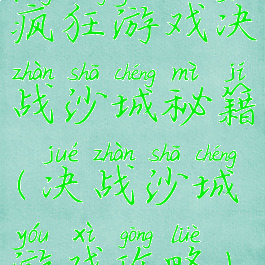 疯狂游戏决
zhàn shā chéng mì jí
战沙城秘籍
jué zhàn shā chéng
(决战沙城
yóu xì gōng lüè
游戏攻略)